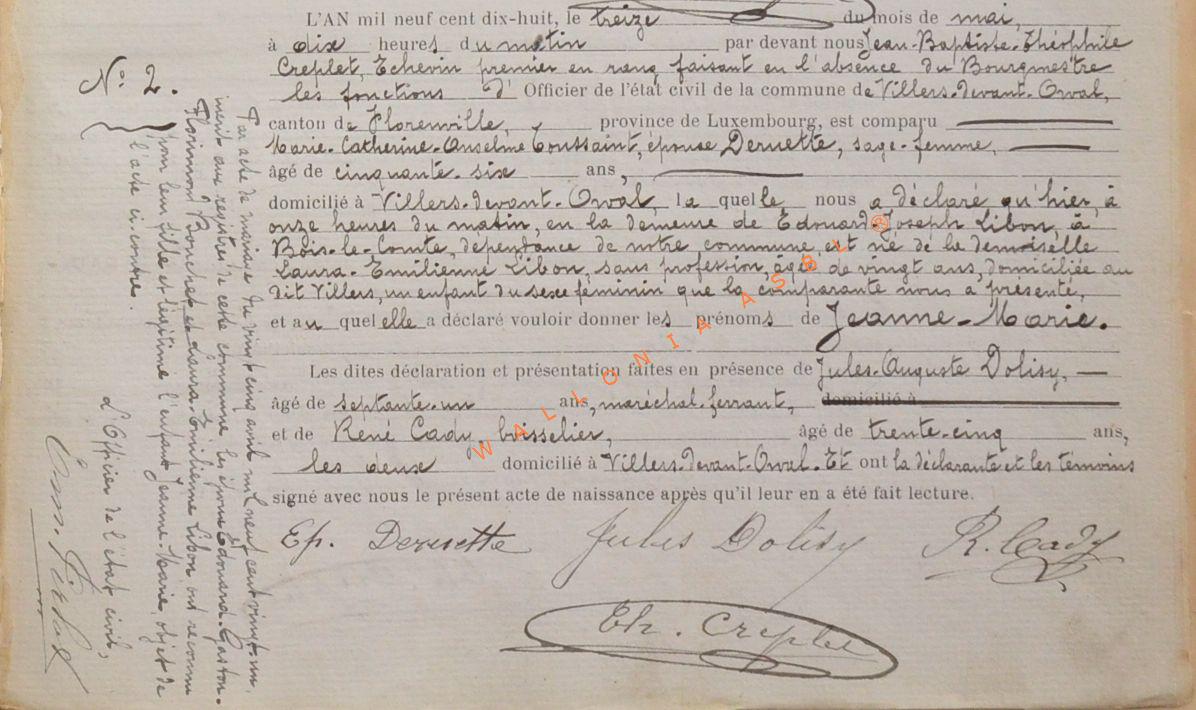 L'AN mil neuf cent dix-huit, le treize du mois de mai,
à dix heures du matin par devant nous Jean-Baptiste-Théophile
Creplet, Echevin premier en rang faisant en l'absence du Bourgmestre
les fonctions d' Officier de l'état civil de la commune de Villers-devant-Orval,
canton de Florenville, province de Luxembourg, est comparu
Marie-Catherine-Anselme Toussaint, épouse Deruette, sage-femme,
âgé de cinquante-six ans,
domicilié à Villers-devant-Orval, la quelle nous a déclaré qu'hier, à
onze heures du matin, en la demeure de Edouard-Joseph Libon, à
Bois-le-Comte, dépendance de notre commune, est né de la demoiselle
Laura-Emilienne Libon, sans profession, âgée de vingt ans, domiciliée au
dit Villers, un enfant du sexe féminin que la comparante nous a présenté,
et au quel elle a déclaré vouloir donner les prénoms de Jeanne-Marie.
Les dites déclaration et présentation faites en présence de Jules-Auguste Dolisy,
âgé de septante-un ans, maréchal-ferrant, domicilié à
et de René Cady, boisselier, âgé de trente-cinq ans,
les deux domicilié à Villers-devant-Orval. Et ont la déclarante et les témoins
signé avec nous le présent acte de naissance après qu'il leur en a été fait lecture.
Ep. Deruette Jules Dolisy R. Cady
Th. Creplet
N° 2.
Par acte de mariage du vingt-cinq avril mil neuf cent vingt-un,
inscrit aux registres de cette commune les époux Edouard-Gaston-
Florimond Bonchet et Laura-Emilienne Libon ont reconnu
pour leur fille et légitimé l'enfant Jeanne-Marie, objet de
l'acte ci-contre.
L'Officier de l'état civil,
WALLONIA ASBL ®